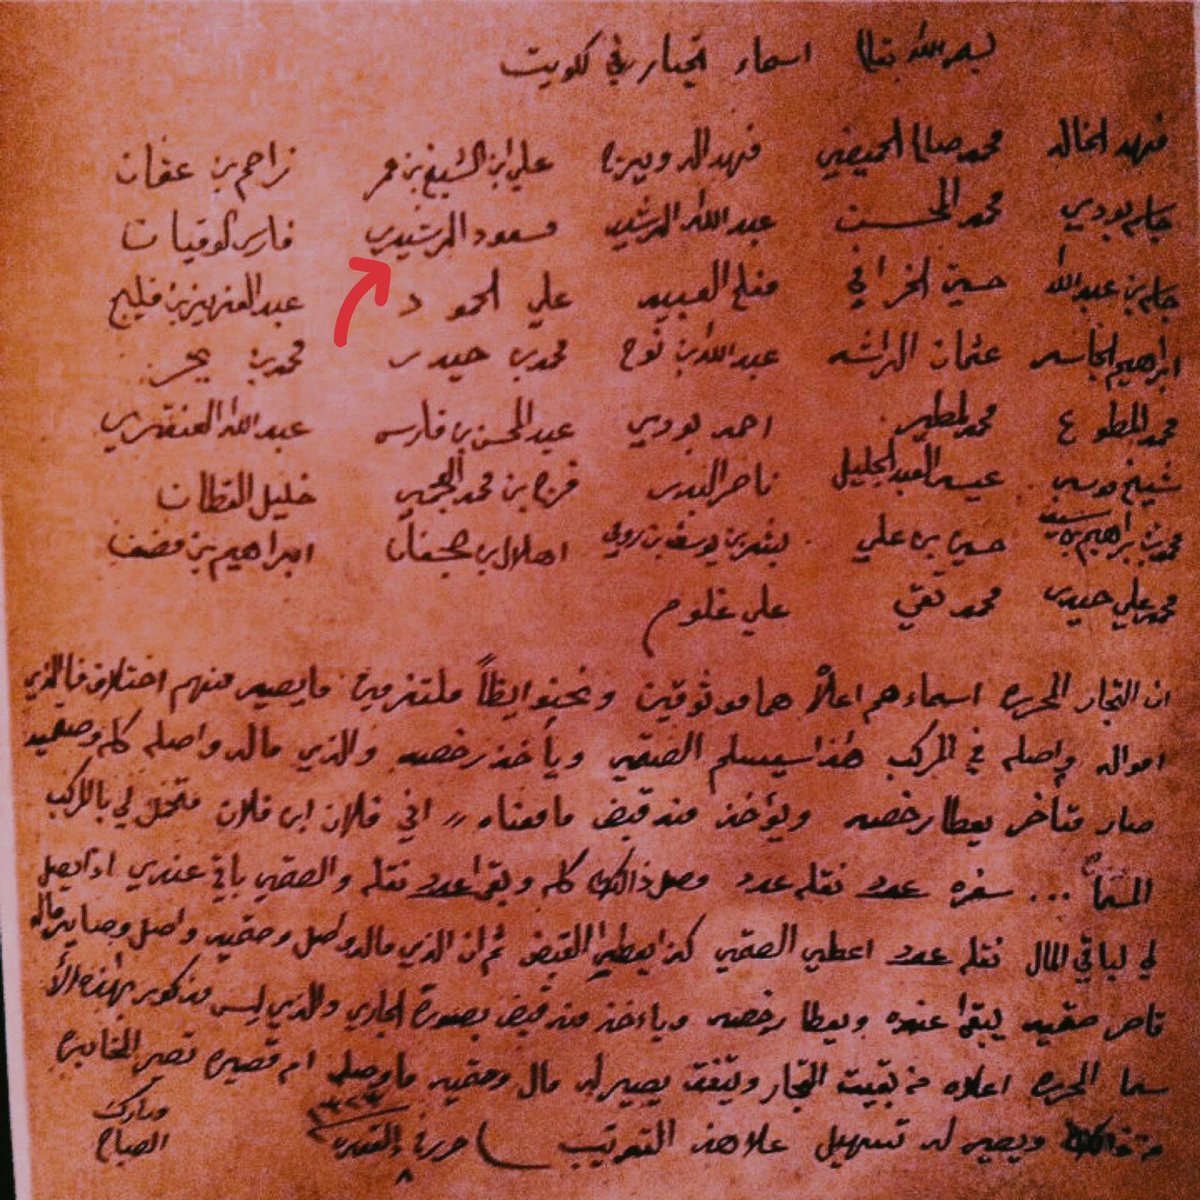 بسم الله تعالى اسماء تجار في كويت
فهد الخالد محمد صالح الحميضي فهد الدويره علي ابن الشيخ بن عمر زاحم بن عثمان
جاسم بودي محمد المحسن عبدالله الرشيد مسعود الرشيدي فارس الوقيان
جاسم بن عبدالله حسين الخرافي مفلح علي الحمود عبدالعزيز بن فليج
ابراهيم الجاسم عثمان الراشد عبدالله بن نوح محمد بن حيدر محمد بن بحر
محمد المطوع محمد المطير احمد بودي عبدالمحسن بن فارس عبدالله العنقري
شيخ موسى عيسى العبدالجليل ناصر البدر فرج بن محمد العجمي خليل القطان
محمد بن ابراهيم بن سيد حسين بن علي بشر بن يوسف بن رومي اهلال بن هجفان ابراهيم بن مضف
محمد علي حيدر محمد تقي علي غلوم
ان التجار المحرره اسماءهم اعلاه هم موثوقين ونحن وايظاً ملتزمين ما يصير منهم اختلاف فالذي
امواله واصله في المركب هذا سيسلم الصقمي وياخذ رخصه والذي ماله واصله كله وصقميه
صار متأخر يعطا رخصه ويؤخذ منه قبض ما معناه // اني فلان ابن فلان متحمل لي بالمركب
المسما ... سفره عدد نقله عدد وصل ذالك كله وبقى عدد نقله والصقمي باقي عندي اذا يصل
لي لباقي المال نقله عدد اعطي الصقمي كذا يعطي القبض ثم ان الذي ماله واصل وصقميه واصل وصاير ماله
قاصر صقميه يبقى عنده ويعطا رخصه وياخذ منه قبض بصورة الجاري والذي ليس مذكور بهذه الأ
سما المحرره اعلاه من بقيت التجار ويتفق يصير له مال وصقميه ما وصله ام قصيره تصير المخابره
ويصير له تسهيل علا هذ الترتيب حرر
مبارك
الصباح